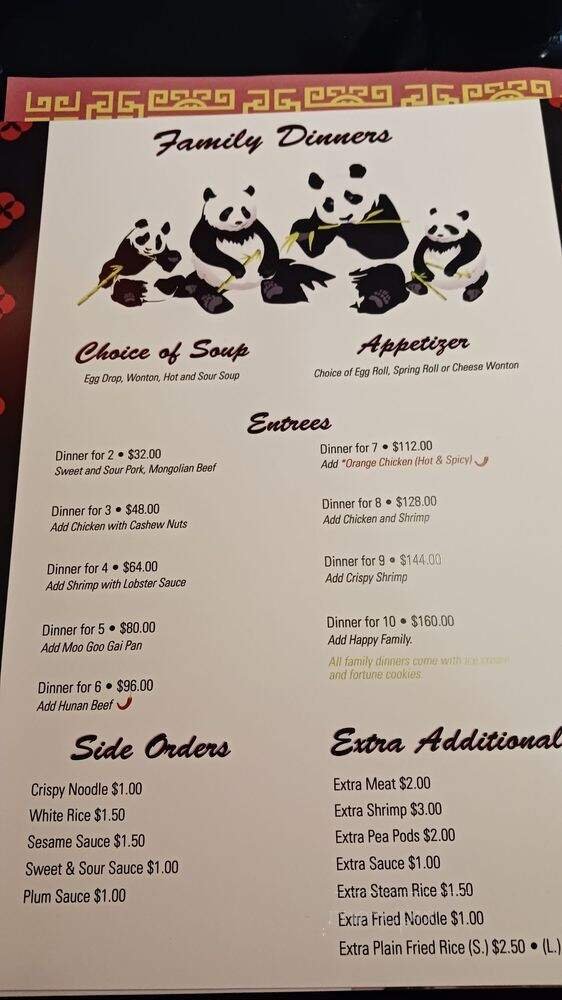 Family Dinners
Choice of Soup
Egg Drop, Wonton, Hot and Sour Soup
Appetizer
Choice of Egg Roll, Spring Roll or Cheese Wonton
Entrees
Dinner for 2 • $32.00
Sweet and Sour Pork, Mongolian Beef
Dinner for 3 • $48.00
Add Chicken with Cashew Nuts
Dinner for 4 • $64.00
Add Shrimp with Lobster Sauce
Dinner for 5 • $80.00
Add Moo Goo Gai Pan
Dinner for 6 • $96.00
Add Hunan Beef
Dinner for 7 • $112.00
Add *Orange Chicken (Hot & Spicy)
Dinner for 8 • $128.00
Add Chicken and Shrimp
Dinner for 9 • $144.00
Add Crispy Shrimp
Dinner for 10 • $160.00
Add Happy Family.
All family dinners come with ice cream
and fortune cookies
Side Orders
Crispy Noodle $1.00
White Rice $1.50
Sesame Sauce $1.50
Sweet & Sour Sauce $1.00
Plum Sauce $1.00
Extra Additional
Extra Meat $2.00
Extra Shrimp $3.00
Extra Pea Pods $2.00
Extra Sauce $1.00
Extra Steam Rice $1.50
Extra Fried Noodle $1.00
Extra Plain Fried Rice (S.) $2.50 • (L.)